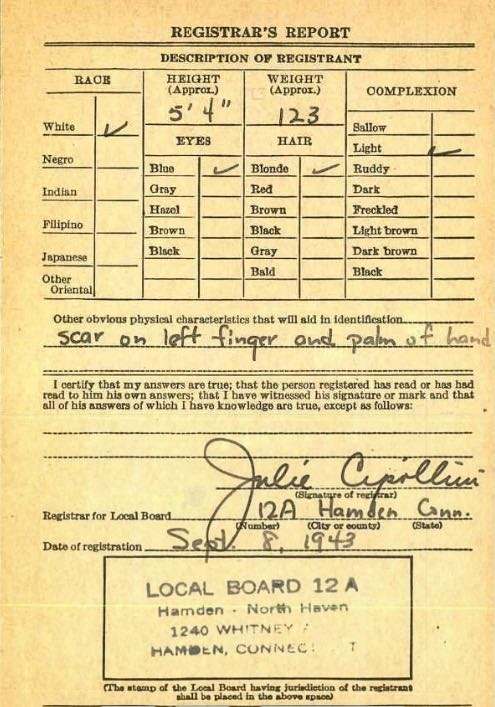 REGISTRAR'S REPORT
DESCRIPTION OF REGISTRANT
RACE
White ✓
Negro
Indian
Filipino
Japanese
Other
Oriental
HEIGHT
(Approx.)
5' 4"
WEIGHT
(Approx.)
123
EYES
Blue ✓
Gray
Hazel
Brown
Black
HAIR
Blonde ✓
Red
Brown
Black
Gray
Bald
COMPLEXION
Sallow
Light ✓
Ruddy
Dark
Freckled
Light brown
Dark brown
Black
Other obvious physical characteristics that will aid in identification
scar on left finger and palm of hand
I certify that my answers are true; that the person registered has read or has had
read to him his own answers; that I have witnessed his signature or mark and that
all of his answers of which I have knowledge are true, except as follows:
Julie Cipollini
(Signature of registrar)
Registrar for Local Board 12A Hamden Conn.
(Number) (City or county) (State)
Date of registration Sept. 8, 1943
LOCAL BOARD 12 A
Hamden - North Haven
1240 WHITNEY
HAMDEN,
(The stamp of the Local Board having jurisdiction of the registrant
shall be placed in the above space)